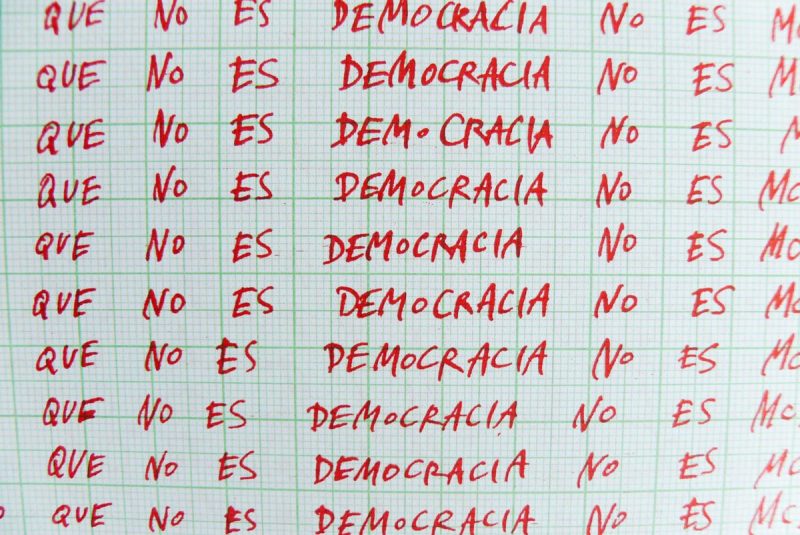 QUE NO ES DEMOCRACIA NO ES
QUE NO ES DEMOCRACIA NO ES
QUE NO ES DEMOCRACIA NO ES
QUE NO ES DEMOCRACIA NO ES
QUE NO ES DEMOCRACIA NO ES
QUE NO ES DEMOCRACIA NO ES
QUE NO ES DEMOCRACIA NO ES
QUE NO ES DEMOCRACIA NO ES
QUE NO ES DEMOCRACIA NO ES
QUE NO ES DEMOCRACIA NO ES